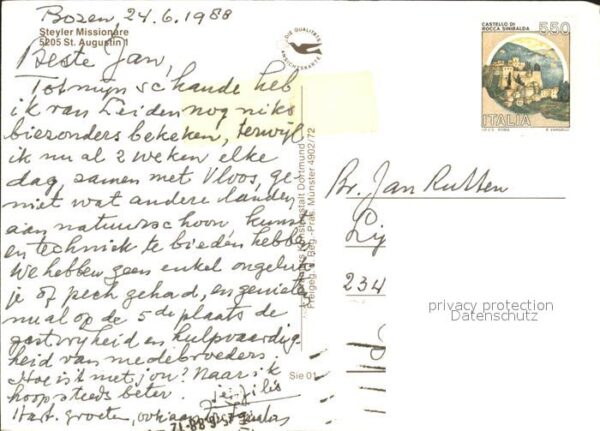 Bozen 24.6.1988
Steyler Missionare
5205 St. Augustin 1
Beste Jan,
Tot mijn schande heb
ik van Leiden nog niks
biezonders bekeken, terwijl
ik nu al 2 weken elke
dag samen met Vloos, ge-
niet wat andere landen
aan natuurschoon kunst
en techniek te bieden hebben
We hebben geen enkel ongeluk-
je of pech gehad, en genieten
nu al op de 5de plaats de
gastvrijheid en hulpvaardig
heid van medebroeders.
Hoe is't met jou? Naar ik
hoop steeds beter.
Hart. groeten, ook aan
DIE QUALITÄTS
ANSICHTSKARTE
Kunstanstalt Dortmund
Freigeg. d. Reg.-Präs. Münster 4902/72
Sie 01
CASTELLO DI
ROCCA SINIBALDA
550
ITALIA
Br. Jan Rutten
234
privacy protection
Datenschutz